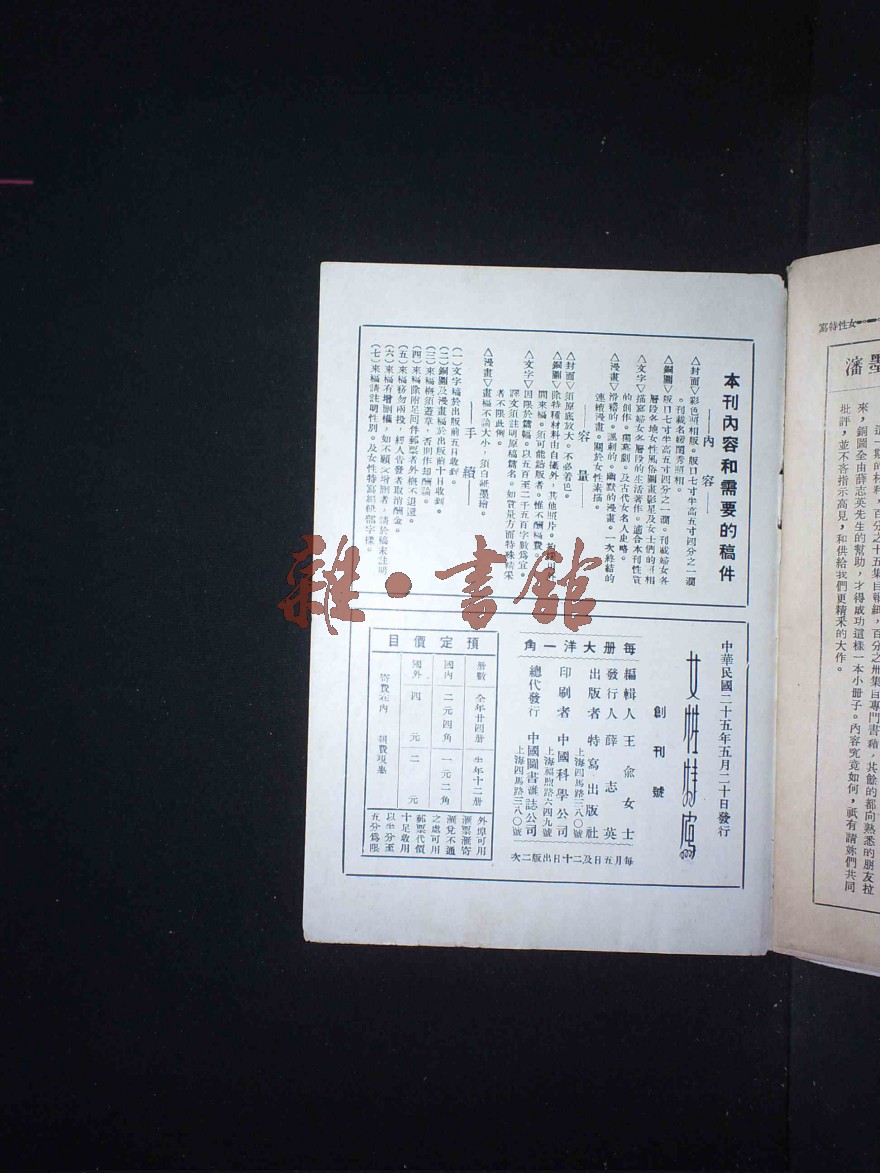 本刊內容和需要的稿件
——內容——
△封面▽彩色照相版。版口七寸半高五寸四分之一濶
。刊載名媛閨秀照相。
△銅圖▽版口七寸半高五寸四分之一濶。刊載婦女各
層段各地女性風俗圖畫影星及女士們的照相
△文字▽描寫婦女各層段的生活著作。適合本刊性質
的創作。獨幕劇。及古代女名人史略。
△漫畫▽滑稽的。諷刺的。幽默的漫畫。一次終結的
連續漫畫。關於女性素描。
——容量——
△封面▽須原底放大。不必着色。
△銅圖▽除特種材料由自攝外，其他照片。
間來稿。須可能給版者。惟不酬稿費。
△文字▽因限於篇幅。以五百至二千五百字數爲宜。
譯文須註明原稿篇名。如質量方面特殊精采
者不限此例。
△漫畫▽畫稿不論大小，須白紙墨繪。
——手續——
(一)文字稿於出版前五日收到。
(二)銅圖及漫畫稿於出版前十日收到。
(三)來稿概須蓋章，否則作却酬論。
(四)來稿除附足回件郵票者外概不退還。
(五)來稿務勿兩投，經人告發者取消酬金。
(六)來稿有增删權，如不願文增删者，請於稿末註明
(七)來稿請註明性別。及女性特寫編緝部字樣。
中華民國二十五年五月二十日發行
女性特寫
創刊號
每册大洋一角
編輯人 王兪女士
發行人 薛志英
出版者 特寫出版社
上海四馬路三八〇號
印刷者 中國科學公司
上海福煦路六四九號
總代發行 中國圖書雜誌公司
上海四馬路三八〇號
每月五日及二十日出版二次
預定價目
册數 全年廿四册 半年十二册
國內 二元四角 一元二角
國外 四元 二元
寄費在內
外埠可用
滙票滙寄
滙兌不通
之處可用
郵票代價
十足收用
以半分至
五分爲限
女性特寫
墨瀋
百分之十五集自報紙，百分之卅集自專門書籍，其餘的都向熟悉的朋友拉
來，銅圖全由薛志英先生的幫助，才得成功這樣一本小册子。內容究竟如何，祇有請姊們共同
批評，並不吝指示高見，和供給我們更精釆的大作。
雜·書館